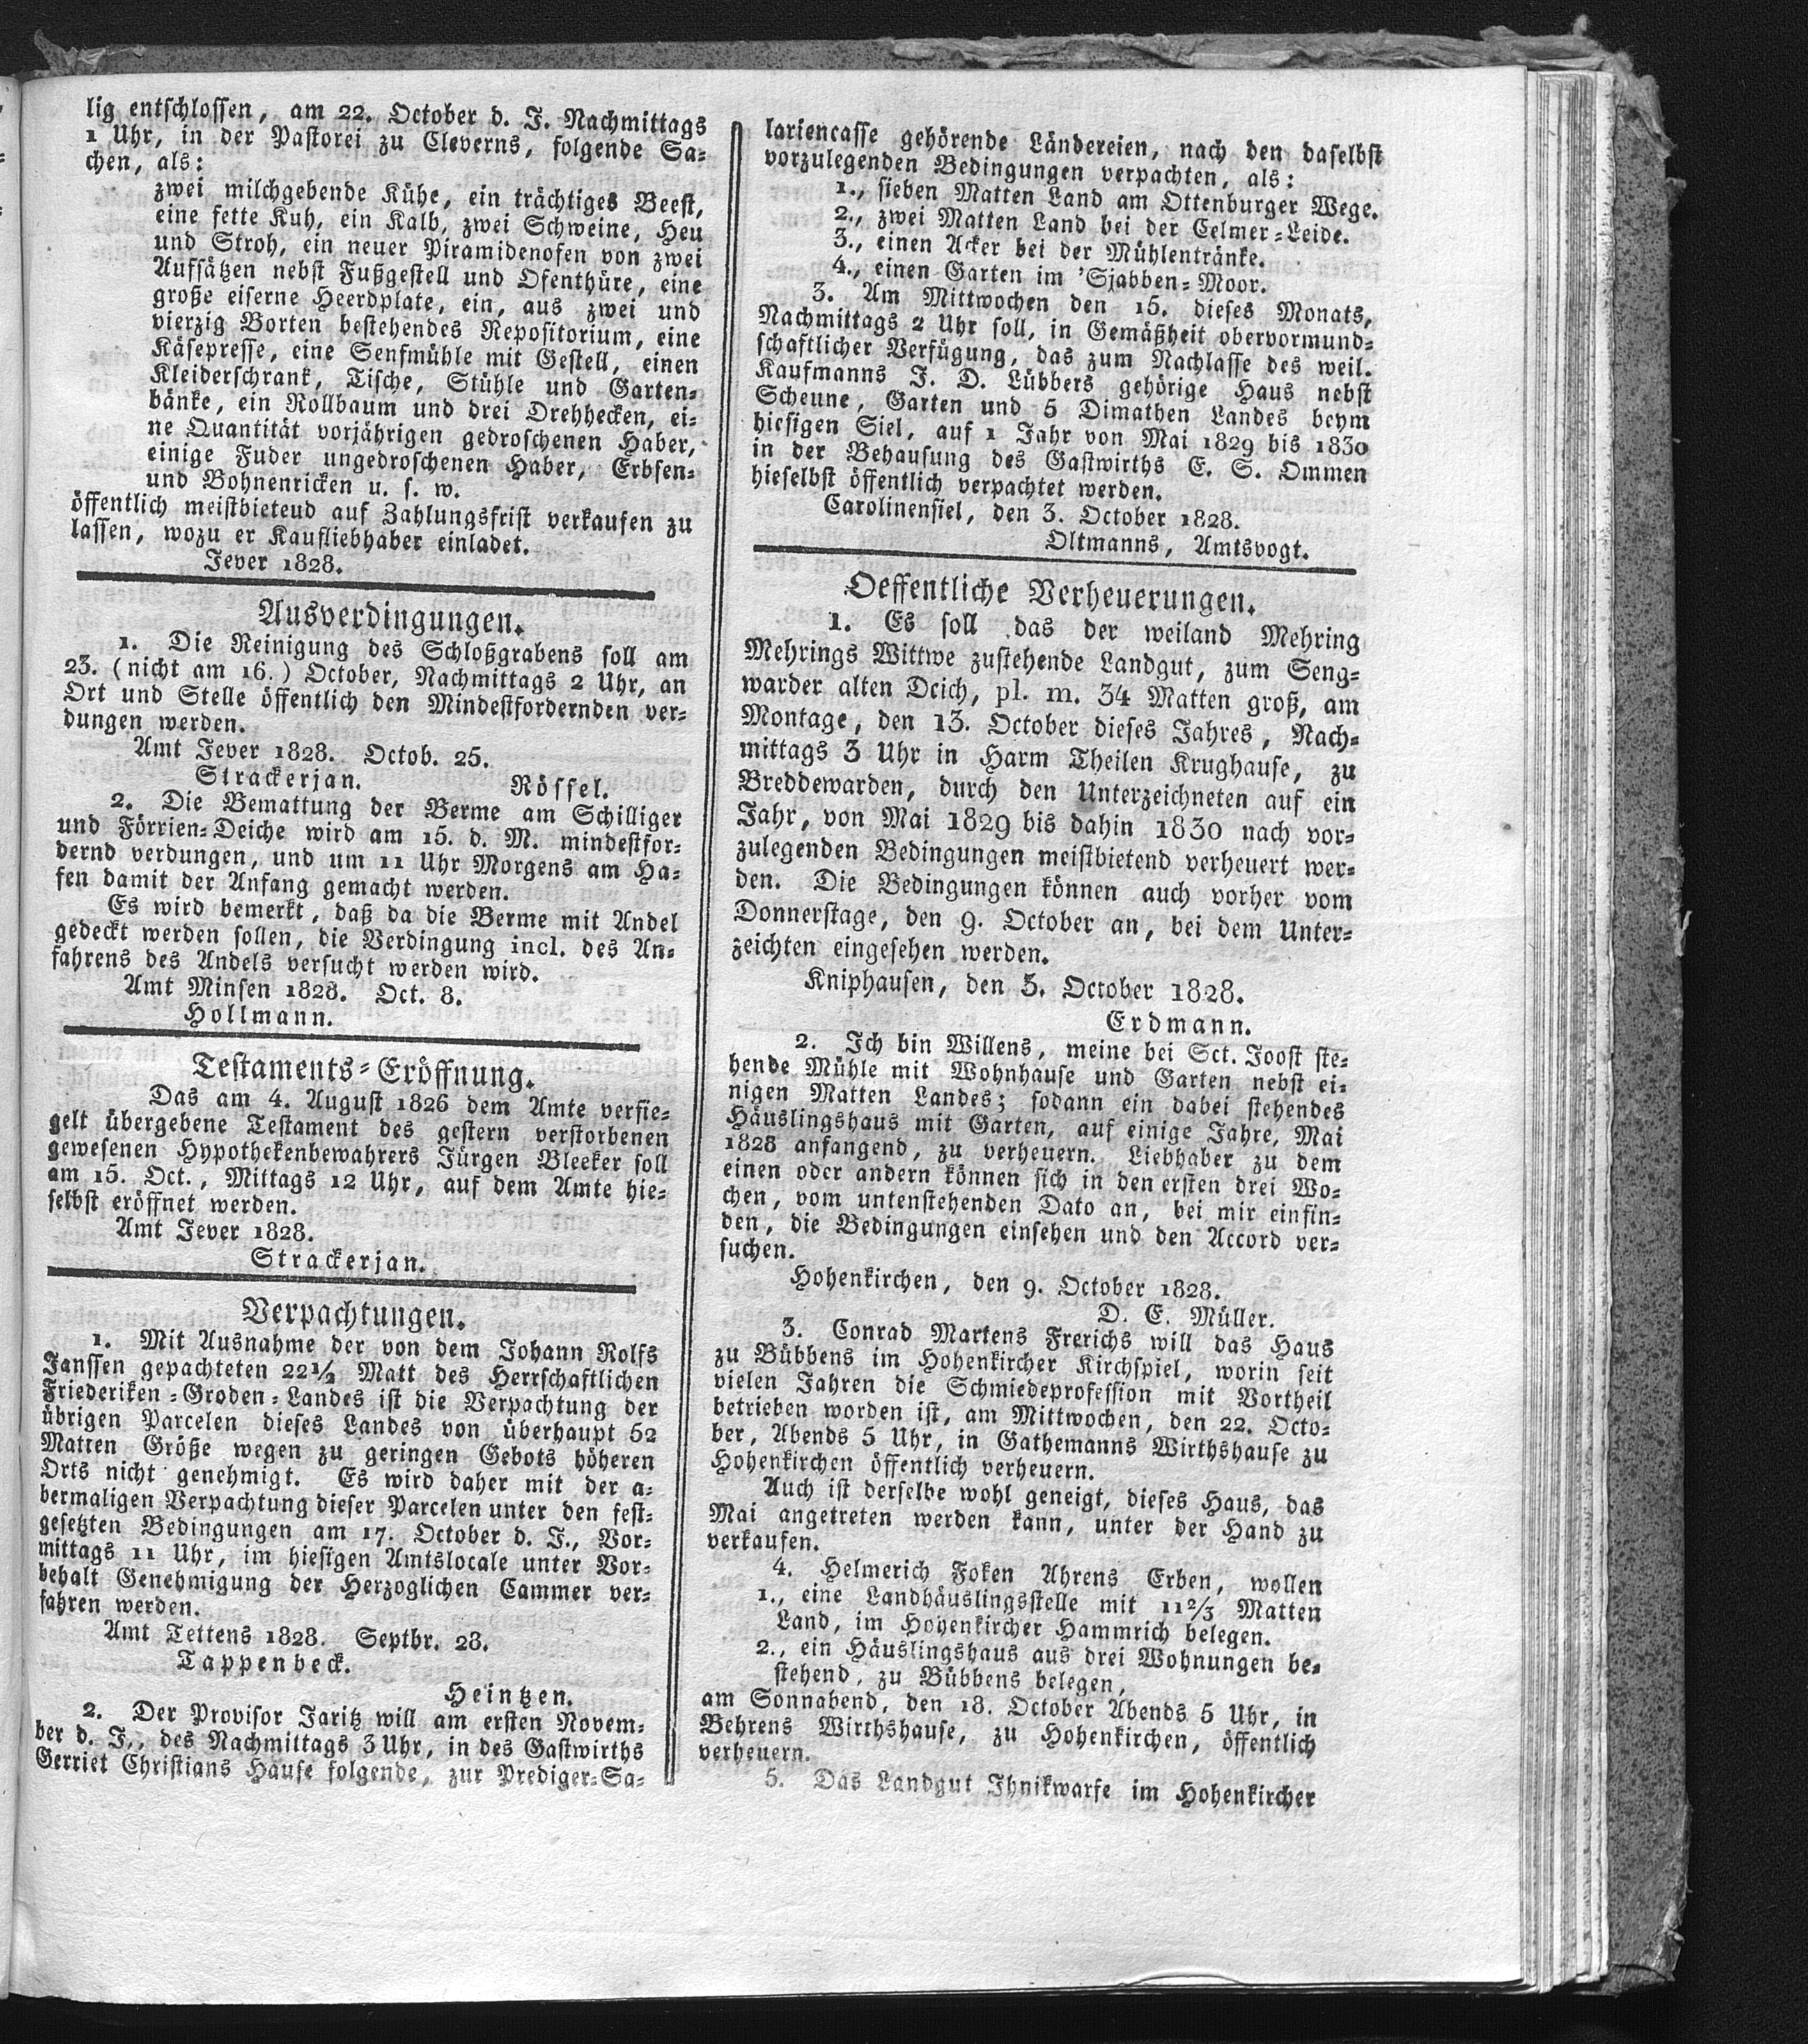 lig entschlossen, am 22. October d. J. Nachmittags
1 Uhr, in der Pastorei zu Cleverns, folgende Sa=
chen, als:
zwei milchgebende Kühe, ein trächtiges Beest,
eine fette Kuh, ein Kalb, zwei Schweine, Heu
und Stroh, ein neuer Piramidenofen von zwei
Aufsätzen nebst Fußgestell und Ofenthüre, eine
große eiserne Heerdplate, ein, aus zwei und
vierzig Borten bestehendes Repositorium, eine
Käsepresse, eine Senfmühle mit Gestell, einen
Kleiderschrank, Tische, Stühle und Garten=
bänke, ein Rollbaum und drei Drehhecken, ei=
ne Quantität vorjährigen gedroschenen Haber,
einige Fuder ungedroschenen Haber, Erbsen=
und Bohnenricken u. s. w.
öffentlich meistbieteud auf Zahlungsfrist verkaufen zu
lassen, wozu er Kaufliebhaber einladet.
Jever 1828.
Ausverdingungen.
1. Die Reinigung des Schloßgrabens soll am
23. (nicht am 16.) October, Nachmittags 2 Uhr, an
Ort und Stelle öffentlich den Mindestfordernden ver=
dungen werden.
Amt Jever 1828. Octob. 25.
Strackerjan. Rössel.
2. Die Bemattung der Berme am Schilliger
und Förrien=Deiche wird am 15. d. M. mindestfor=
dernd verdungen, und um 11 Uhr Morgens am Ha=
fen damit der Anfang gemacht werden.
Es wird bemerkt, daß da die Berme mit Andel
gedeckt werden sollen, die Verdingung incl. des An=
fahrens des Andels versucht werden wird.
Amt Minsen 1828. Oct. 8.
Hollmann.
Testaments=Eröffnung.
Das am 4. August 1826 dem Amte versie=
gelt übergebene Testament des gestern verstorbenen
gewesenen Hypothekenbewahrers Jürgen Bleeker soll
am 15. Oct., Mittags 12 Uhr, auf dem Amte hie=
selbst eröffnet werden.
Amt Jever 1828.
Strackerjan.
Verpachtungen.
1. Mit Ausnahme der von dem Johann Rolfs
Janssen gepachteten 22½ Matt des Herrschaftlichen
Friederiken=Groden=Landes ist die Verpachtung der
übrigen Parcelen dieses Landes von überhaupt 52
Matten Größe wegen zu geringen Gebots höheren
Orts nicht genehmigt. Es wird daher mit der a=
bermaligen Verpachtung dieser Parcelen unter den fest=
gesetzten Bedingungen am 17. October d. J., Vor=
mittags 11 Uhr, im hiesigen Amtslocale unter Vor=
behalt Genehmigung der Herzoglichen Cammer ver=
fahren werden.
Amt Tettens 1828. Septbr. 28.
Tappenbeck.
Heintzen.
2. Der Provisor Jaritz will am ersten Novem=
ber d. J., des Nachmittags 3 Uhr, in des Gastwirths
Gerriet Christians Hause folgende, zur Prediger=Sa=
lariencasse gehörende Ländereien, nach den daselbst
vorzulegenden Bedingungen verpachten, als:
1., sieben Matten Land am Ottenburger Wege.
2., zwei Matten Land bei der Celmer=Leide.
3., einen Acker bei der Mühlentränke.
4., einen Garten im 'Sjabben=Moor.
3. Am Mittwochen den 15. dieses Monats,
Nachmittags 2 Uhr soll, in Gemäßheit obervormund=
schaftlicher Verfügung, das zum Nachlasse des weil.
Kaufmanns J. D. Lübbers gehörige Haus nebst
Scheune, Garten und 5 Dimathen Landes beym
hiesigen Siel, auf 1 Jahr von Mai 1829 bis 1830
in der Behausung des Gastwirths E. S. Ommen
hieselbst öffentlich verpachtet werden.
Carolinensiel, den 3. October 1828.
Oltmanns, Amtsvogt.
Oeffentliche Verheuerungen.
1. Es soll das der weiland Mehring
Mehrings Wittwe zustehende Landgut, zum Seng=
warder alten Deich, pl. m. 34 Matten groß, am
Montage, den 13. October dieses Jahres, Nach=
mittags 3 Uhr in Harm Theilen Krughause, zu
Breddewarden, durch den Unterzeichneten auf ein
Jahr, von Mai 1829 bis dahin 1830 nach vor=
zulegenden Bedingungen meistbietend verheuert wer=
den. Die Bedingungen können auch vorher vom
Donnerstage, den 9. October an, bei dem Unter=
zeichten eingesehen werden.
Kniphausen, den 3. October 1828.
Erdmann.
2. Ich bin Willens, meine bei Sct. Joost ste=
hende Mühle mit Wohnhause und Garten nebst ei=
nigen Matten Landes; sodann ein dabei stehendes
Häuslingshaus mit Garten, auf einige Jahre, Mai
1828 anfangend, zu verheuern. Liebhaber zu dem
einen oder andern können sich in den ersten drei Wo=
chen, vom untenstehenden Dato an, bei mir einfin=
den, die Bedingungen einsehen und den Accord ver=
suchen.
Hohenkirchen, den 9. October 1828.
D. E. Müller.
3. Conrad Martens Frerichs will das Haus
zu Bübbens im Hohenkircher Kirchspiel, worin seit
vielen Jahren die Schmiedeprofession mit Vortheil
betrieben worden ist, am Mittwochen, den 22. Octo=
ber, Abends 5 Uhr, in Gathemanns Wirthshause zu
Hohenkirchen öffentlich verheuern.
Auch ist derselbe wohl geneigt, dieses Haus, das
Mai angetreten werden kann, unter der Hand zu
verkaufen.
4. Helmerich Foken Ahrens Erben, wollen
1., eine Landhäuslingsstelle mit 11⅔ Matten
Land, im Hohenkircher Hammrich belegen.
2., ein Häuslingshaus aus drei Wohnungen be=
stehend, zu Bübbens belegen,
am Sonnabend, den 18. October Abends 5 Uhr, in
Behrens Wirthshause, zu Hohenkirchen, öffentlich
verheuern.
5. Das Landgut Ihnikwarfe im Hohenkircher